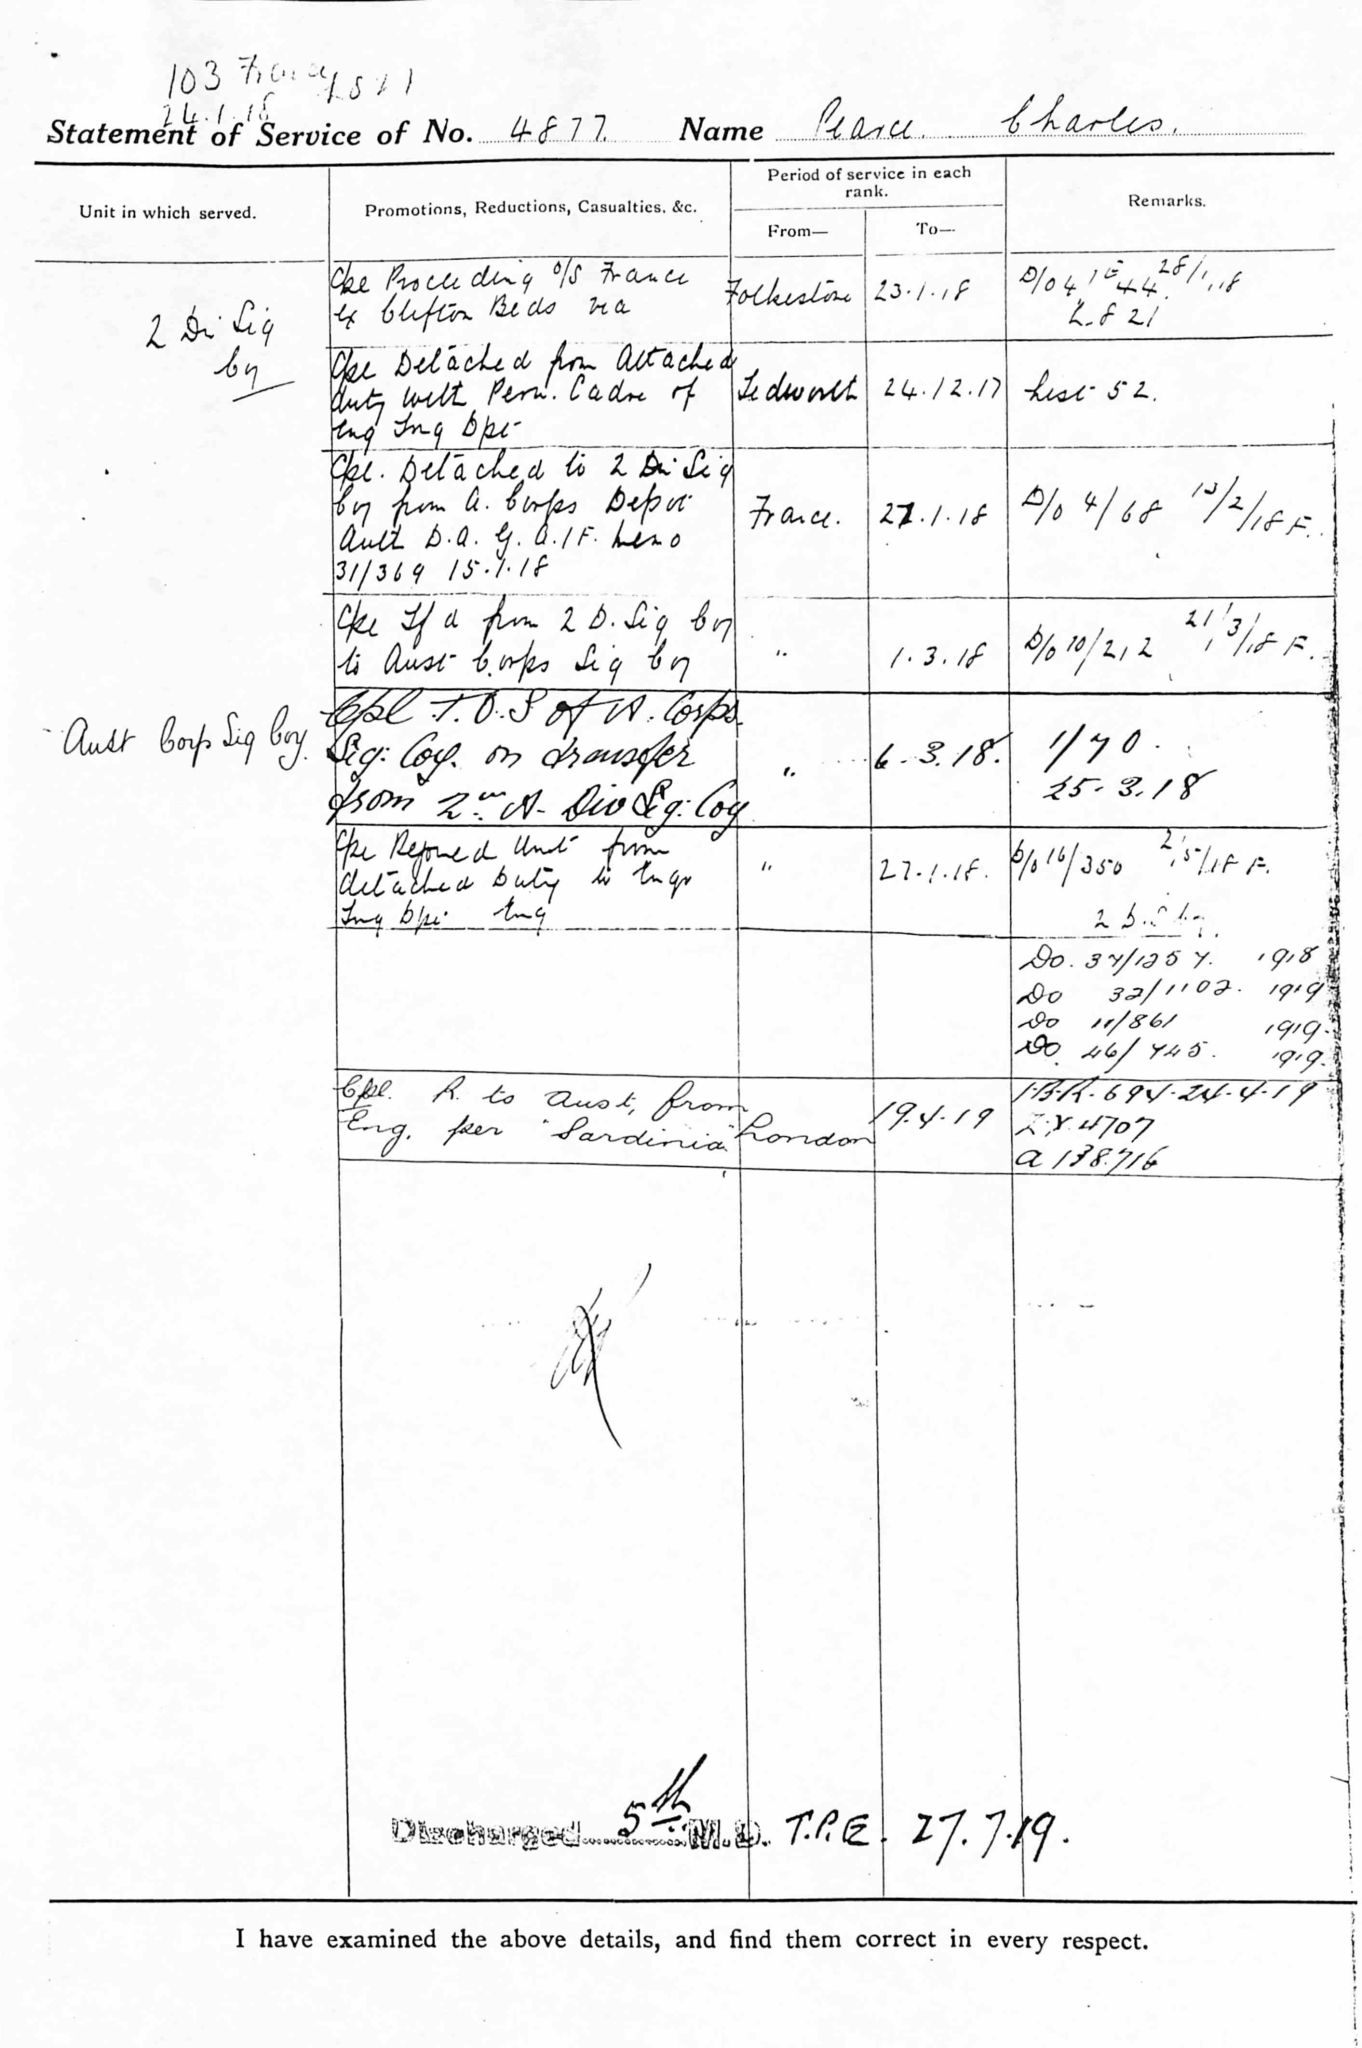 103 France
24.1.18
Statement of Service of No. 4877. Name Pearce Charles.
Unit in which served.
Promotions, Reductions, Casualties, &c.
Period of service in each
rank.
From—
To—
Remarks.
2 Div Sig
Coy
Cpl Proceeding o/s France
ex Clifton Beds via
Folkestone
23.1.18
D/O 4 44 28/1/18
L.8 21
Cpl Detached from Attached
duty with Perm. Cadre of
Eng Tng Dpt
Tedworth
24.12.17
List 52.
Cpl. Detached to 2 Div Sig
Coy from A. Corps Depot
Auth D.A.G. A.I.F. Memo
31/369 15.1.18
France.
27.1.18
D/O 4/68 13/2/18 F.
Cpl Tfd from 2 D. Sig Coy
to Aust Corps Sig Coy
"
1.3.18
D/O 10/212 21/3/18 F.
Aust Corps Sig Coy.
Cpl T.O.S of A. Corps.
Sig: Coy. on transfer
from 2nd A. Div Sig: Coy
"
6.3.18.
1/70.
25.3.18
Cpl Rejoined Unit from
detached Duty to Engr
Tng Dpt Eng
"
27.1.18.
D/O 16/350 2/5/18 F.
2 D.
Do. 37/1257. 1918
Do 32/1102. 1919
Do 11/861 1919.
Do. 46/745. 1919.
Cpl. R. to Aust, from
Eng. per "Sardinia"
London
19.4.19
I.B.R. 694-24-4-19
Z.Y. 4707
A 138716
Discharged 5th M.D. T.P.E. 27.7.19.
I have examined the above details, and find them correct in every respect.